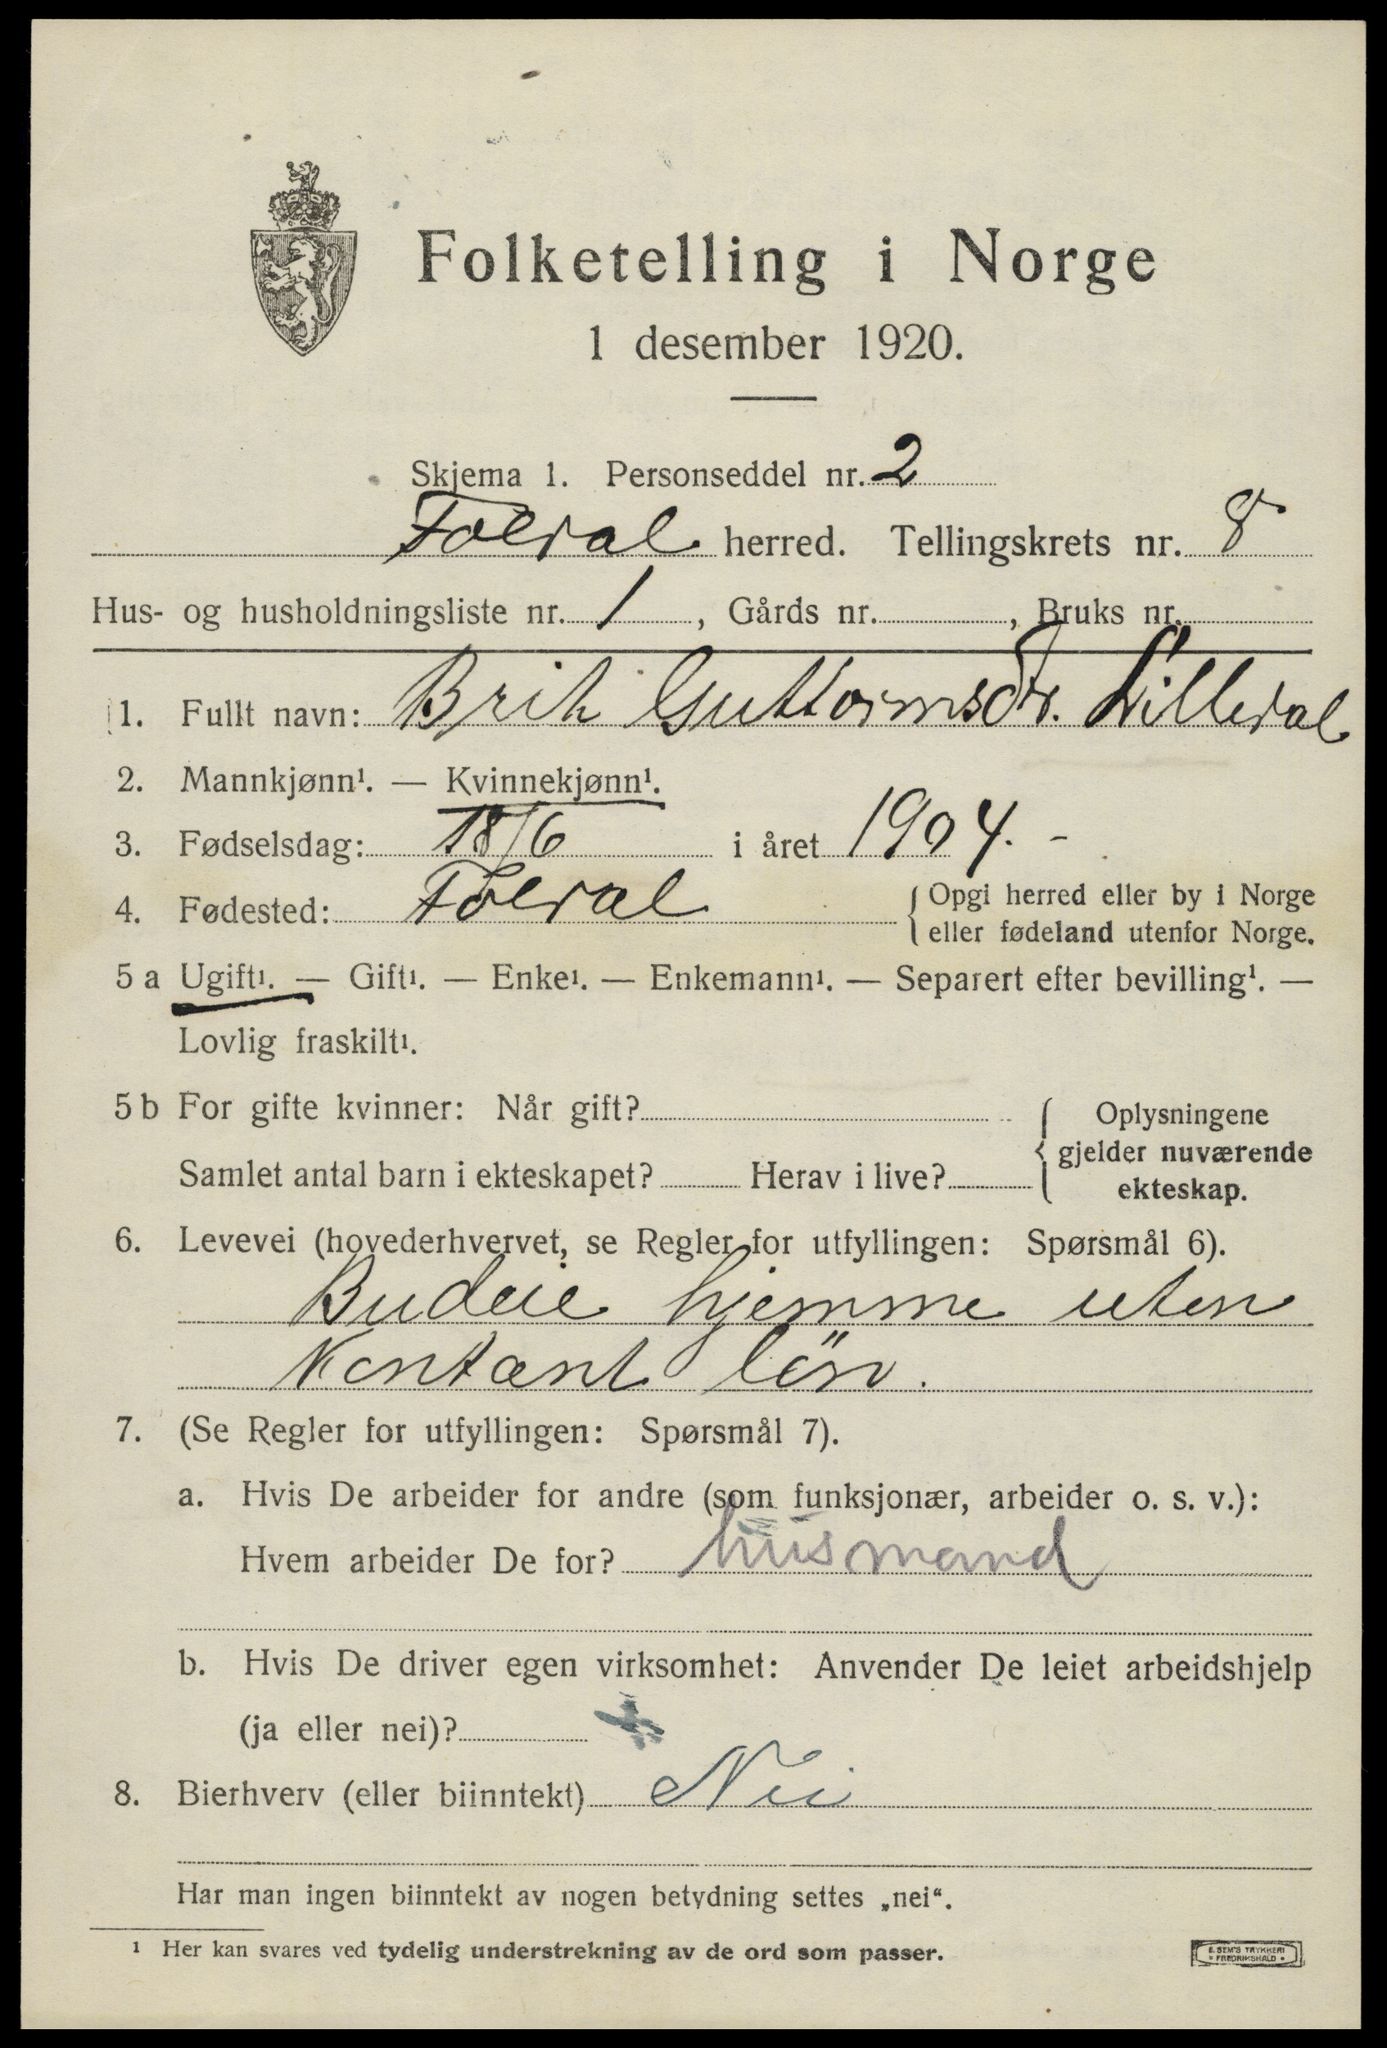 Folketelling i Norge
1 desember 1920.
Skjema 1. Personseddel nr. 2
Foldal herred. Tellingskrets nr. 8
Hus- og husholdningsliste nr. 1, Gårds nr. , Bruks nr.
1. Fullt navn: Brit Guttormsdtr. Lilledal
2. Mannkjønn¹. — Kvinnekjønn¹.
3. Fødselsdag: 18/6 i året 1904. -
4. Fødested: Foldal { Opgi herred eller by i Norge
eller fødeland utenfor Norge.
5 a Ugift¹. — Gift¹. — Enke¹. — Enkemann¹. — Separert efter bevilling¹. —
Lovlig fraskilt¹.
5 b For gifte kvinner: Når gift? { Oplysningene
gjelder nuværende
Samlet antal barn i ekteskapet? Herav i live? ekteskap.
6. Levevei (hovederhvervet, se Regler for utfyllingen: Spørsmål 6).
Budeie hjemme uten
kontant lön.
7. (Se Regler for utfyllingen: Spørsmål 7).
a. Hvis De arbeider for andre (som funksjonær, arbeider o. s. v.):
Hvem arbeider De for? husmand
b. Hvis De driver egen virksomhet: Anvender De leiet arbeidshjelp
(ja eller nei)?
8. Bierhverv (eller biinntekt) Nei
Har man ingen biinntekt av nogen betydning settes „nei“.
¹ Her kan svares ved tydelig understrekning av de ord som passer.
E. SEM'S TRYKKERI
FREDRIKSHALD